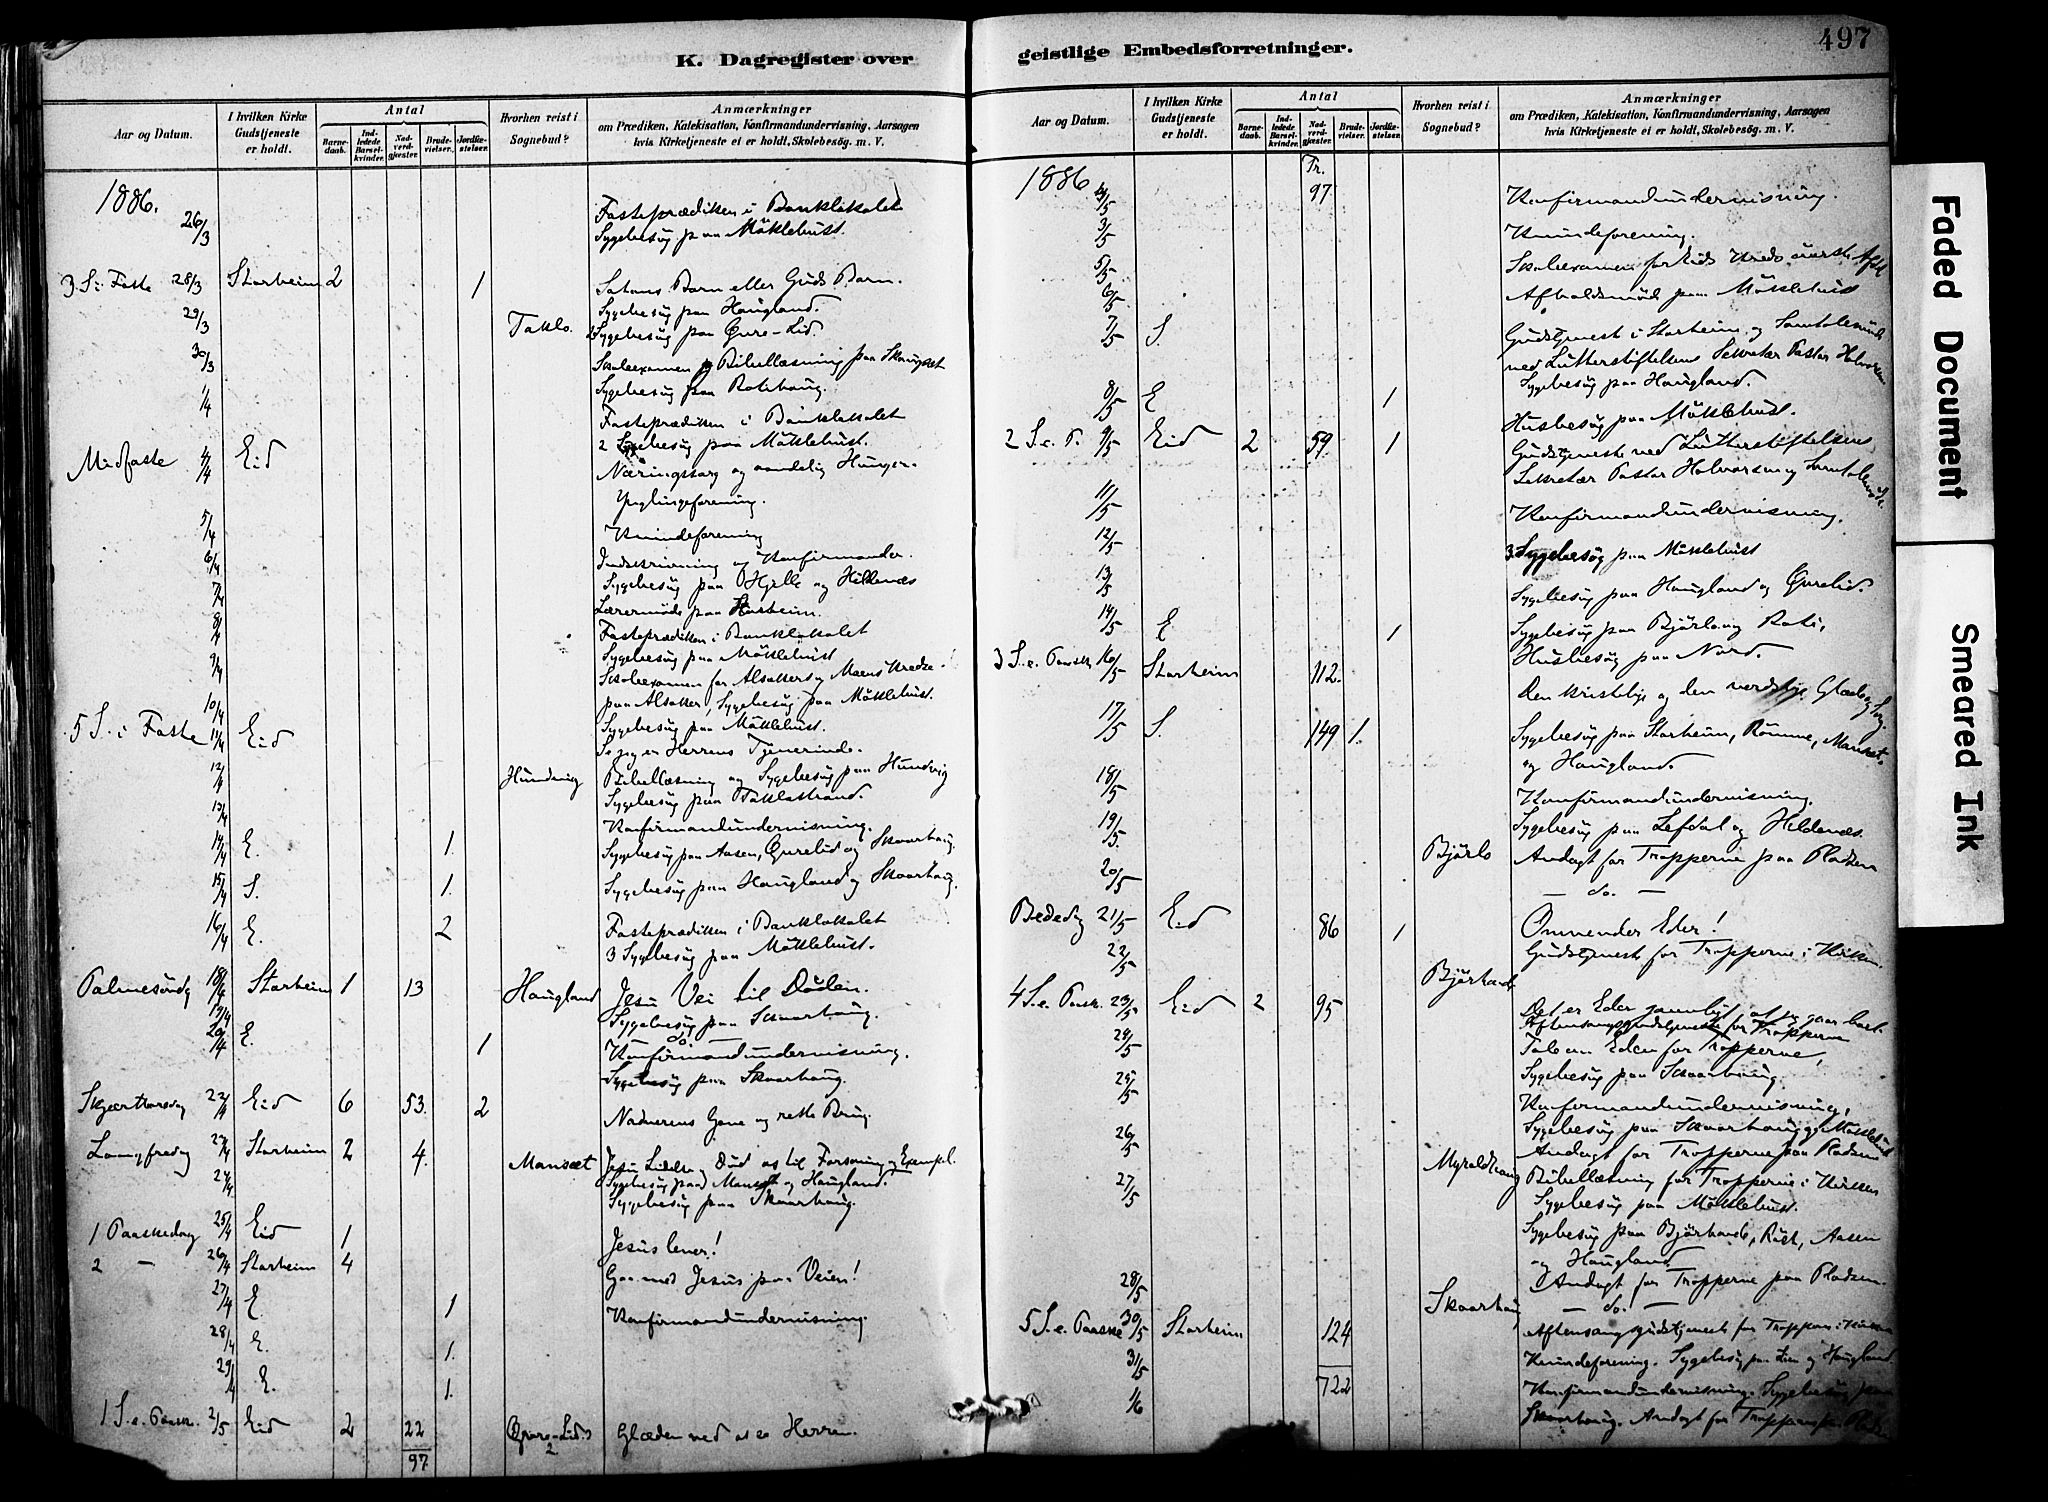 497
K. Dagregister over
Aar og Datum.
I hvilken Kirke Gudstjeneste er holdt.
Antal
Barne-daab.
Ind-ledede Barsel-kvinder.
Nad-verd-gjæster.
Brude-vielser.
Jordfæ-stelser.
Hvorhen reist i Sognebud?
Anmærkninger
om Prædiken, Katekisation, Konfirmandundervisning, Aarsagen
hvis Kirketjeneste ei er holdt, Skolebesög. m. V.
1886.
26/3 Fasteprædiken i Banklokalet
Sygebesög paa Möklebust.
3 S. i Faste 28/3 Starheim 2 1 Satans Barn eller Guds Barn.
Sygebesög paa Haugland.
29/3 Taklo. Sygebesög paa Øvre-Lid.
30/3 Skoleexamen og Bibellæsning paa
Sygebesög paa
1/4 Fasteprædiken i Banklokalet
2 Sygebesög paa Möklebust.
Midfaste 4/4 Eid Næringssorg og aandelig Hunger.
Ynglingeforening.
5/4 Kvindeforening
6/4 Indskrivning af Konfirmander.
7/4 Sygebesög paa Hjelle og Hildenæs
Lærermöde paa Starheim.
8/4 Fasteprædiken i Banklokalet
Sygebesög paa Möklebust
9/4 Skoleexamen for Alsaker og Maens Kredse
paa Alsaker, Sygebesög paa Möklebust.
10/4 Sygebesög paa Möklebust.
5 S. i Faste 11/4 Eid Se jeg er Herrens Tjenerinde.
12/4 Hundvig Bibellæsning og Sygebesög paa Hundvig
13/4 Sygebesög paa Taklostrand.
Konfirmandundervisning.
14/4 E. 1. Sygebesög paa Aasen, Øvrelid og Skaarhaug.
15/4 S. 1. Sygebesög paa Haugland og Skaarhaug.
16/4 E. 2 Fasteprædiken i Banklokalet
3 Sygebesög paa Möklebust.
Palmesöndag 18/4 Starheim 1 13 Haugland Jesu Vei til Döden.
19/4 Sygebesög paa Skaarhaug.
20/4 E. 1 — do. —
Konfirmandundervisning.
Sygebesög paa Skaarhaug.
Skjærthorsdag 22/4 Eid 6 53. 2 Nadverens Gave og rette Brug.
Langfredag 23/4 Starheim 2 4. Mansæt Jesu Lidelse og Död os til Forsoning og Exempel.
24/4 Sygebesög paa Mansæt og Haugland.
Sygebesög paa Skaarhaug.
1 Paaskedag 25/4 Eid 1 Jesus lever!
2 — 26/4 Starheim 4 Gaa med Jesus paa Veien!
27/4 E. 1 Konfirmandundervisning.
28/4 E. 1.
29/4 E. 1.
1 S. e. Paask. 2/5 Eid 2 22 Øvre-Lid. 2 Glæden ved at se Herren.
97.
geistlige Embedsforretninger.
Aar og Datum.
I hvilken Kirke Gudstjeneste er holdt.
Antal
Barne-daab.
Ind-ledede Barsel-kvinder.
Nad-verd-gjæster.
Brude-vielser.
Jordfæ-stelser.
Hvorhen reist i Sognebud?
Anmærkninger
om Prædiken, Katekisation, Konfirmandundervisning, Aarsagen
hvis Kirketjeneste ei er holdt, Skolebesög. m. V.
Tr.
1886 97 Konfirmandundervisning.
3/5 Kvindeforening.
5/5 Skoleexamen for Eids Kreds
6/5 Afholdsmöde paa Möklebust
7/5 S. Gudstjeneste i Starheim og Samtalemöde
med Lutherstiftelsens Sekretær Pastor Halvorsen
Sygebesög paa Haugland.
8/5 E 1 Husbesög paa Möklebust.
2 S. e. P. 9/5 Eid 2 59. 1 Gudstjeneste ved Lutherstiftelsens
Sekretær Pastor Halvorsen og Samtalemöde.
11/5 Konfirmandundervisning.
12/5 3 Sygebesög paa Möklebust
13/5 Sygebesög paa Haugland og Øvrelid.
14/5 E 1 Sygebesög paa Bjørlo og
Husbesög paa Nord.
3 S. e. Paask. 16/5 Starheim 112. Den kristelige og den verdslige Glæde og Sorg.
17/5 S. 149 1. Sygebesög paa Starheim, Mansæt.
og Haugland.
18/5 Konfirmandundervisning.
19/5 Sygebesög paa Lefdal og Hildenæs.
Bjørlo Andagt for Tropperne paa Pladsen
20/5 — do. —
Bededag 21/5 Eid 86 1 Omvender Eder!
22/5 Gudstjeneste for Tropperne i Kirken.
Bjørhovde
4 S. e. Paask. 23/5 Eid 2 95 Det er Eder gavnligt at jeg gaar bort.
Aftensangsgudstjeneste for Tropperne
24/5 Tale om Eden for Tropperne,
Sygebesög paa Skaarhaug.
25/5 Konfirmandundervisning,
Sygebesög paa Skaarhaug og Möklebust
26/5 Andagt for Tropperne paa Pladsen
Myroldhaug Bibellæsning for Tropperne i Kirken
27/5 Sygebesög paa Möklebust.
Sygebesög paa Bjørhovde, Aasen
og Haugland
28/5 Andagt for Tropperne paa Pladsen.
Skaarhaug — do. —
5 S. e. Paaske 30/5 Starheim 124 Aftensangsgudstjeneste for Troppern i Kirken
31/5 Kvindeforening. Sygebesög paa Lien og Haugland
722
1/6 Konfirmandundervisning. Sygebesög paa
Skaarhaug. Andagt for Tropperne paa Pladsen
Faded Document
Smeared Ink